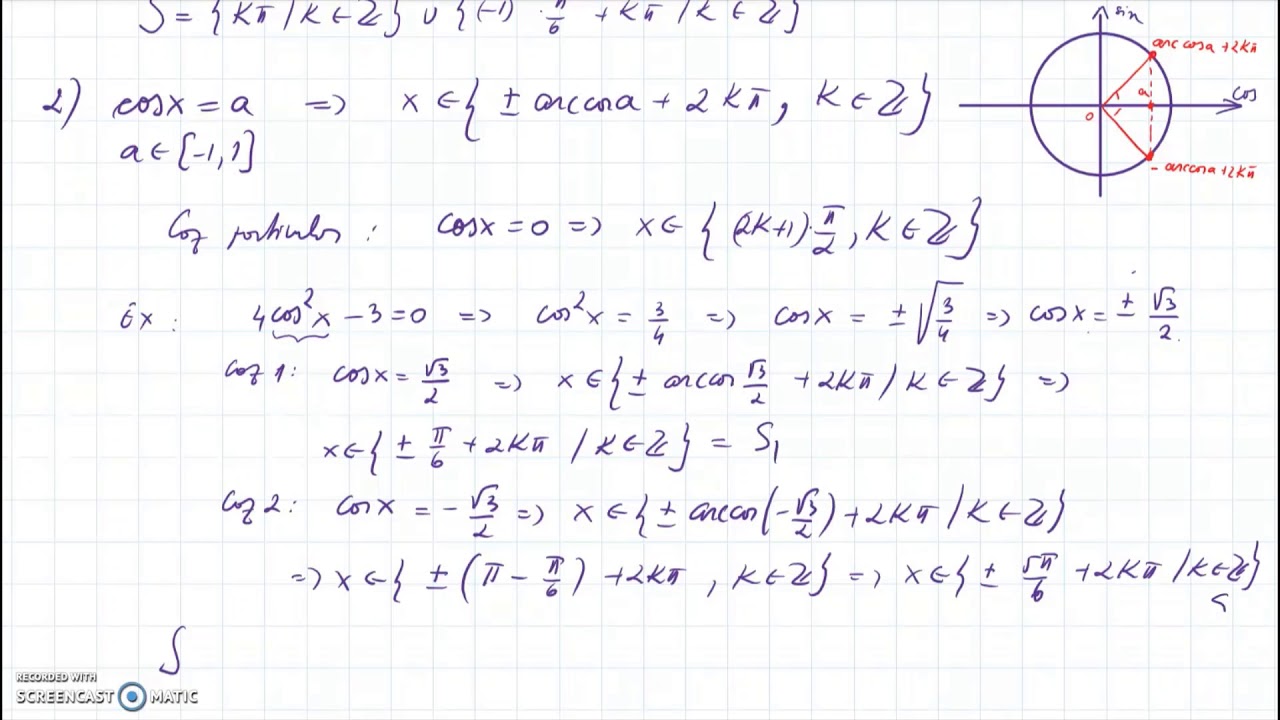 S = {kπ / k ∈ ℤ} ∪ {(-1) · π/6 + kπ / k ∈ ℤ}
sin
arc cos a + 2kπ
2) cos x = a => x ∈ { ± arccos a + 2kπ, k ∈ ℤ }
a
cos
0
a ∈ [-1, 1]
- arccos a + 2kπ
Caz particular : cos x = 0 => x ∈ { (2k+1)·π/2, k ∈ ℤ }
Ex : 4cos²x - 3 = 0 => cos²x = 3/4 => cos x = ± √(3/4) => cos x = ± √3/2
Caz 1: cos x = √3/2 => x ∈ { ± arccos √3/2 + 2kπ / k ∈ ℤ } =>
x ∈ { ± π/6 + 2kπ / k ∈ ℤ } = S₁
Caz 2: cos x = - √3/2 => x ∈ { ± arccos(-√3/2) + 2kπ / k ∈ ℤ }
=> x ∈ { ± (π - π/6) + 2kπ, k ∈ ℤ } => x ∈ { ± 5π/6 + 2kπ / k ∈ ℤ }
S
S
RECORDED WITH
SCREENCAST MATIC